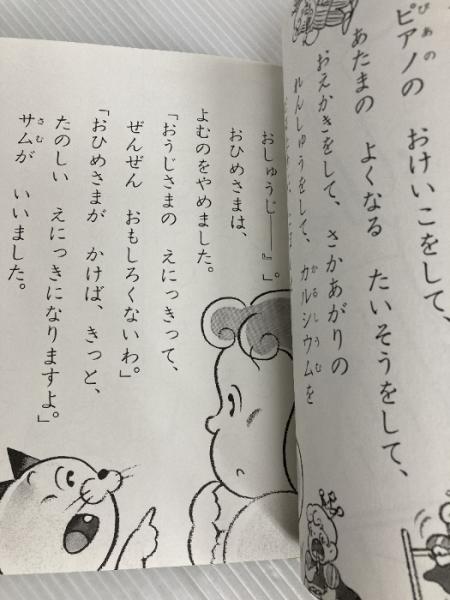 ピアノの おけいこをして、
あたまの よくなる たいそうをして、
おえかきをして、さかあがりの
れんしゅうをして、カルシウムを
おしゅうじ――』。
おひめさまは、
よむのをやめました。
「おうじさまの えにっきって、
ぜんぜん おもしろくないわ。」
「おひめさまが かけば、きっと、
たのしい えにっきになりますよ。」
サムが いいました。